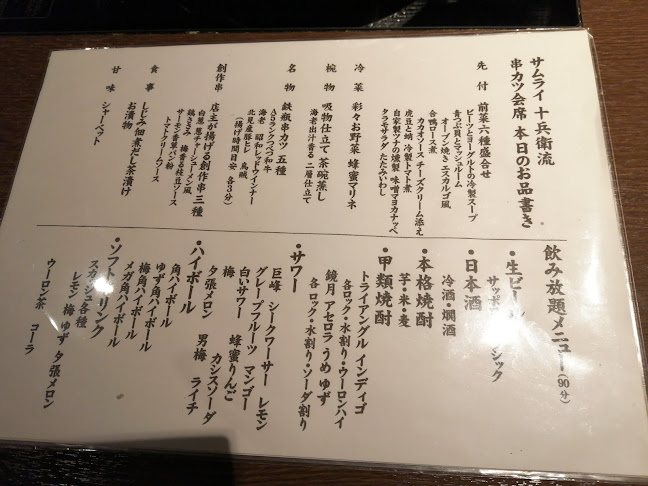 サムライ 十兵衛流
串カツ会席 本日のお品書き
先付 前菜六種盛合せ
ビーツとヨーグルトの冷製スープ
青つぶ貝とマッシュルーム
オーブン焼き エスカルゴ風
合鴨ロース煮
カカオソース チーズクリーム添え
虎豆と蛸 冷製トマト煮
自家製ツナの燻製 味噌マヨカナッペ
タラモサラダ たたみいわし
冷菜 彩々お野菜 蜂蜜マリネ
椀物 吸物仕立て 茶碗蒸し
海老出汁香る 二層仕立て
名物 鉄瓶串カツ 五種
A5ランクつくべ和牛
海老 昭和レッドウインナー
北見産豚ヒレ 鳥賊
(揚げ時間目安 各3分)
創作串 店主が揚げる創作串 三種
白葱 葱チャーシューメン風
鶏ささみ 梅香る枝豆ソース
サーモン香草パン粉
トマトクリームソース
食事 しじみ佃煮だし茶漬け
お漬物
甘味 シャーベット
飲み放題メニュー(90分)
・生ビール
サッポロ
・日本酒
冷酒・燗酒
・本格焼酎
芋・米・麦
・甲類焼酎
トライアングル インディゴ
各ロック・水割り・ウーロンハイ
鏡月 アセロラ うめ ゆず
各 ロック・水割り・ソーダ割り
・サワー
巨峰 シークワーサー レモン
グレープフルーツ マンゴー
白いサワー 蜂蜜りんご
梅 カシスソーダ
夕張メロン 男梅 ライチ
・ハイボール
角ハイボール
ゆず角ハイボール
梅角ハイボール
メガ角ハイボール
・ソフトドリンク
スカッシュ各種
レモン 梅 ゆず 夕張メロン
ウーロン茶 コーラ